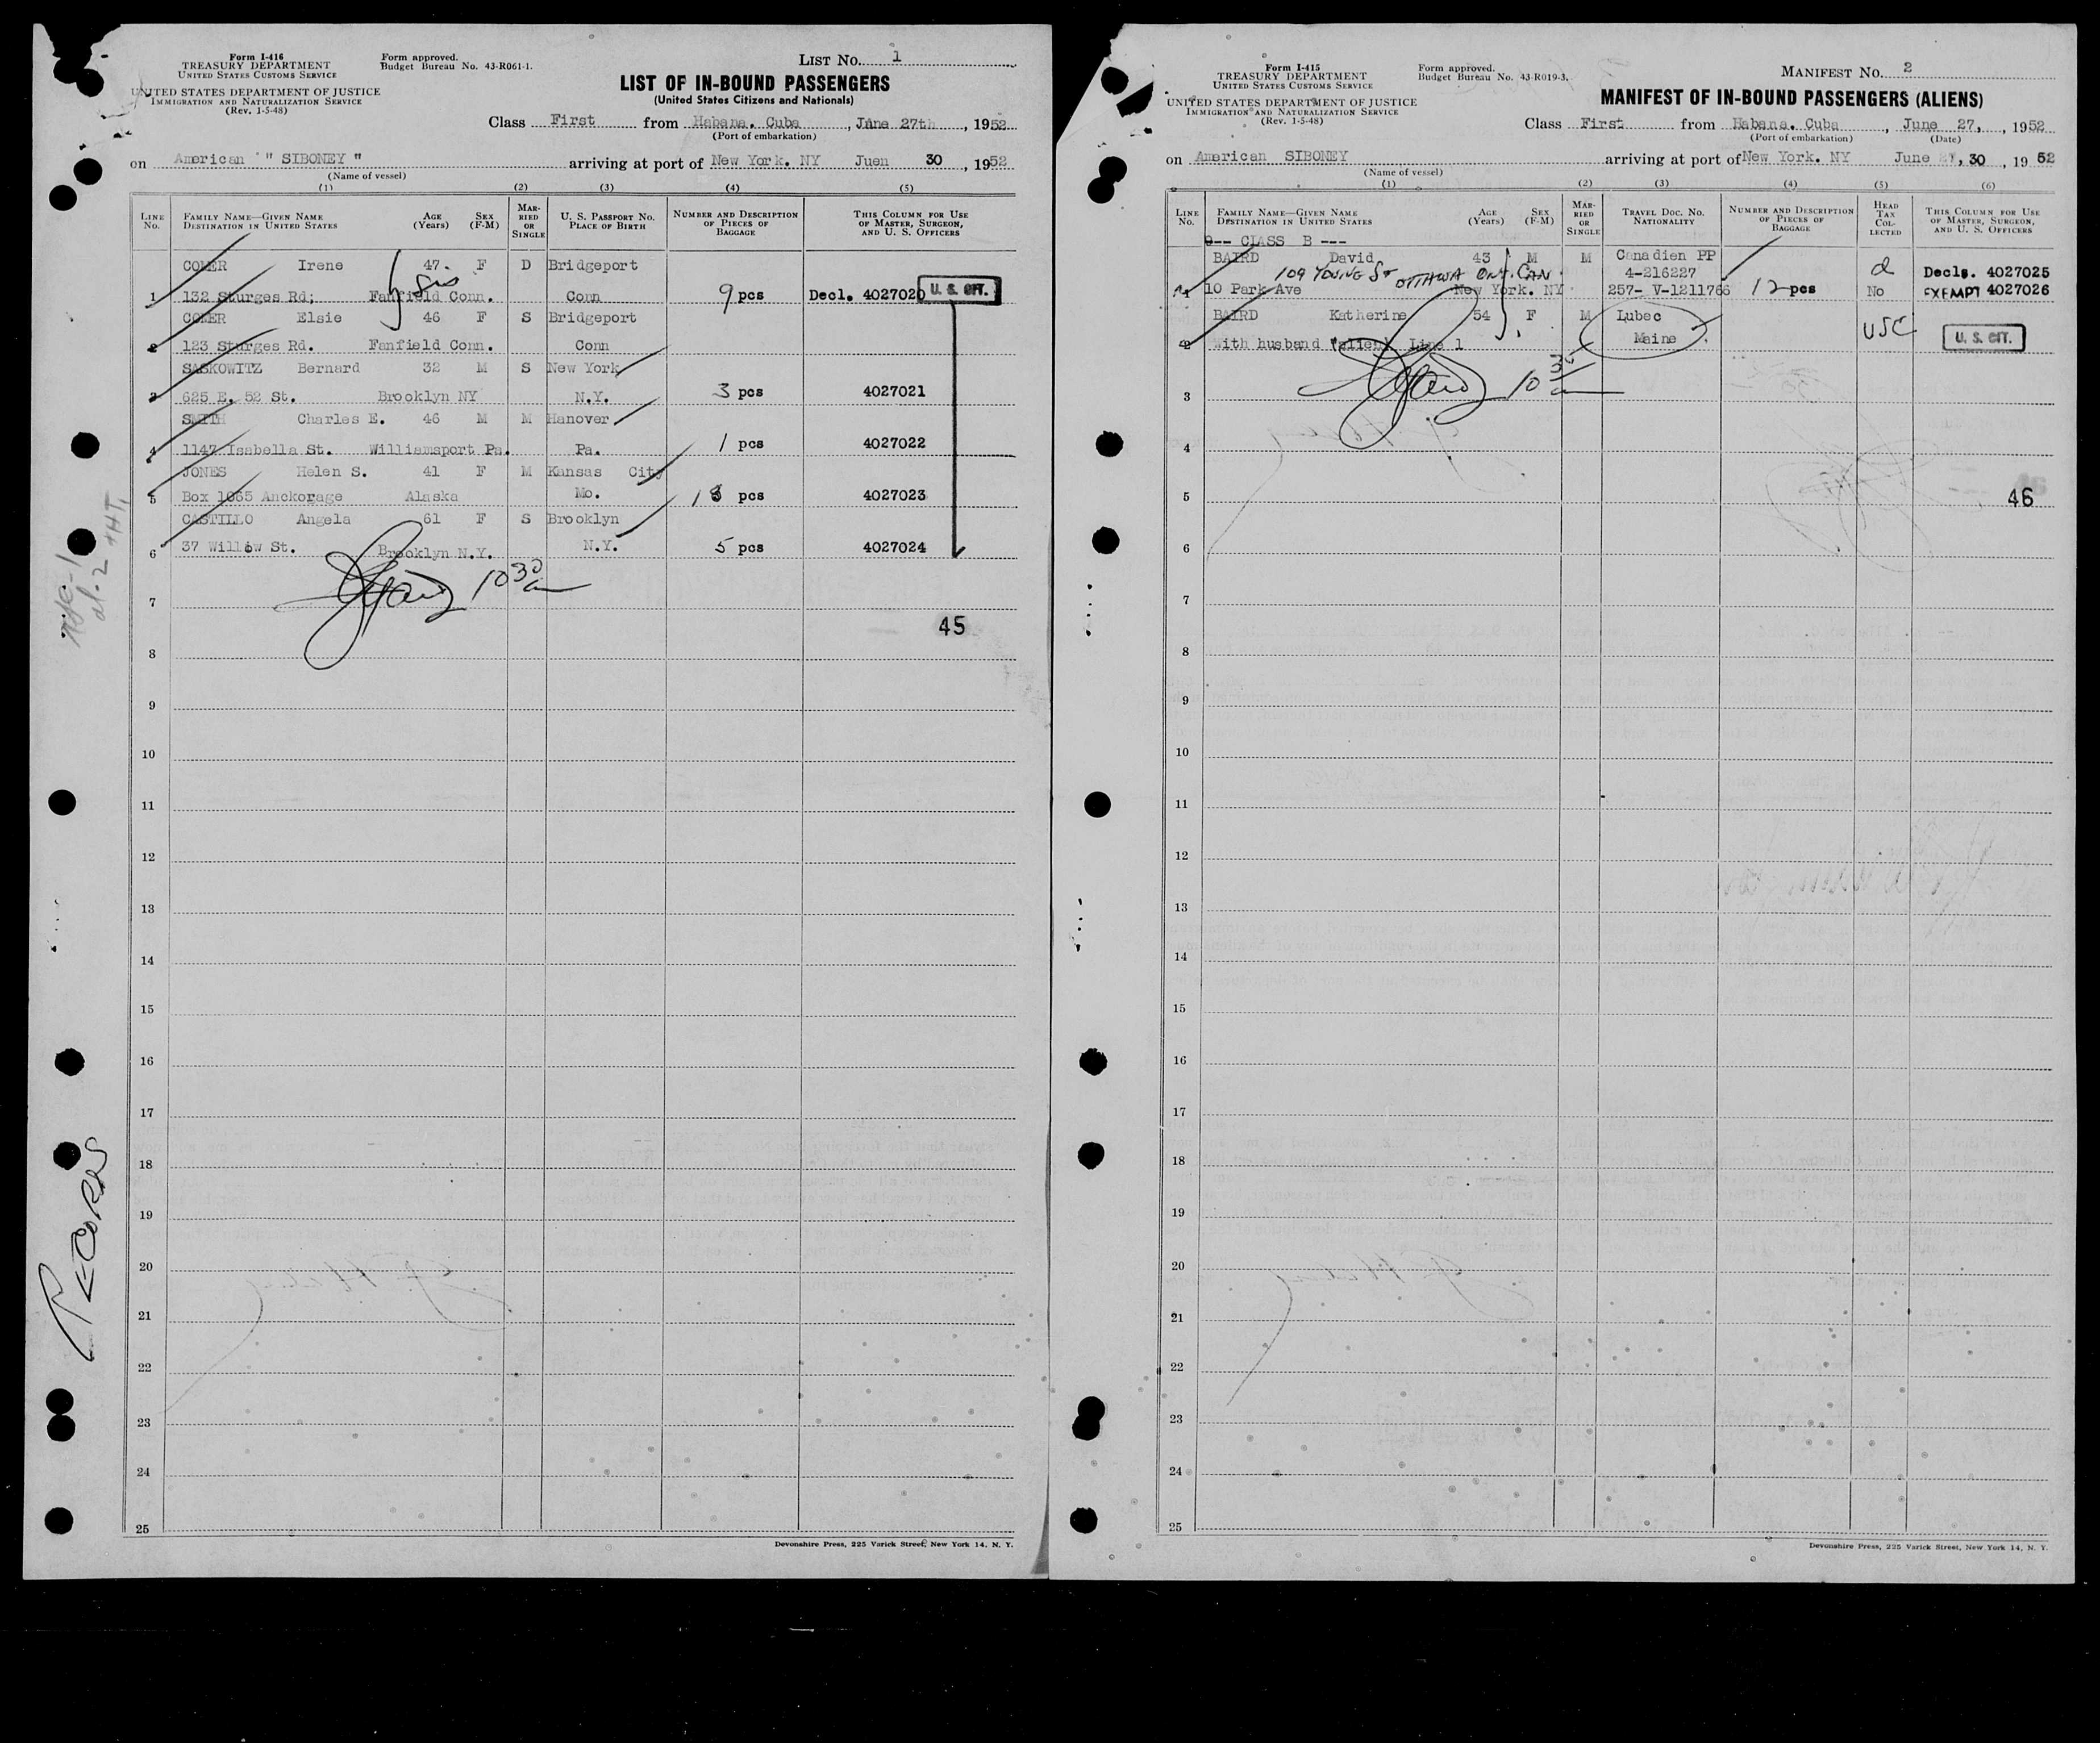 Form I-416
TREASURY DEPARTMENT
UNITED STATES CUSTOMS SERVICE
UNITED STATES DEPARTMENT OF JUSTICE
IMMIGRATION AND NATURALIZATION SERVICE
(Rev. 1-5-48)
Form approved.
Budget Bureau No. 43-R061-1.
LIST NO. 1
LIST OF IN-BOUND PASSENGERS
(United States Citizens and Nationals)
Class First from Habana. Cuba, June 27th, 1952
(Port of embarkation)
on American " SIBONEY " arriving at port of New York. NY Juen 30, 1952
(Name of vessel)
(1) (2) (3) (4) (5)
LINE NO. FAMILY NAME—GIVEN NAME DESTINATION IN UNITED STATES AGE (Years) SEX (F-M) MARRIED OR SINGLE U. S. PASSPORT NO. PLACE OF BIRTH NUMBER AND DESCRIPTION OF PIECES OF BAGGAGE THIS COLUMN FOR USE OF MASTER, SURGEON, AND U. S. OFFICERS
COMER Irene 47 F D Bridgeport
sis
1 132 Sturges Rd; Fanfield Conn. Conn 9 pcs Decl. 4027020 U. S. CIT.
COMER Elsie 46 F S Bridgeport
2 123 Sturges Rd. Fanfield Conn. Conn
SASKOWITZ Bernard 32 M S New York
3 625 E. 52 St. Brooklyn NY N.Y. 3 pcs 4027021
SMITH Charles E. 46 M M Hanover
4 1147 Isabella St. Williamsport Pa. Pa. 1 pcs 4027022
JONES Helen S. 41 F M Kansas City
5 Box 1065 Anckorage Alaska Mo. 18 pcs 4027023
CASTILLO Angela 61 F S Brooklyn
6 37 Willow St. Brooklyn N.Y. N.Y. 5 pcs 4027024
10 30 a
7
45
8
9
10
11
12
13
14
15
16
17
18
19
20
21
22
23
24
25
Devonshire Press, 225 Varick Street, New York 14, N. Y.
RECORDS
Form I-415
TREASURY DEPARTMENT
UNITED STATES CUSTOMS SERVICE
UNITED STATES DEPARTMENT OF JUSTICE
IMMIGRATION AND NATURALIZATION SERVICE
(Rev. 1-5-48)
Form approved.
Budget Bureau No. 43-R019-3.
MANIFEST NO. 2
MANIFEST OF IN-BOUND PASSENGERS (ALIENS)
Class First from Habana. Cuba, June 27, , 1952
(Port of embarkation) (Date)
on American SIBONEY arriving at port of New York. NY June 30, 1952
(Name of vessel)
(1) (2) (3) (4) (5) (6)
LINE NO. FAMILY NAME—GIVEN NAME DESTINATION IN UNITED STATES AGE (Years) SEX (F-M) MARRIED OR SINGLE TRAVEL DOC. NO. NATIONALITY NUMBER AND DESCRIPTION OF PIECES OF BAGGAGE HEAD TAX COLLECTED THIS COLUMN FOR USE OF MASTER, SURGEON, AND U. S. OFFICERS
--- CLASS B ---
BAIRD David 43 M M Canadien PP
109 YOUNG ST OTTAWA ONT. CAN 4-216227 Decls. 4027025
1 10 Park Ave New York. NY 257- V-1211766 12 pcs No EXEMPT 4027026
BAIRD Katherine 54 F M Lubec
2 with husband (alien) Line 1 Maine USC U. S. CIT.
10 30 a
3
4
5 46
6
7
8
9
10
11
12
13
14
15
16
17
18
19
20
21
22
23
24
25
Devonshire Press, 225 Varick Street, New York 14, N. Y.